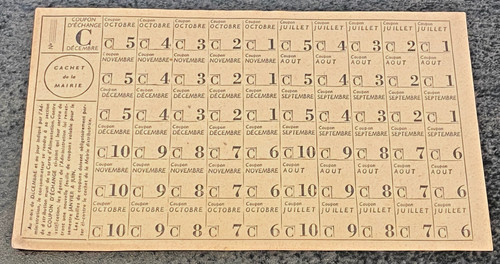 COUPON
D'ÉCHANGE
C
DÉCEMBRE
N°
CACHET
de la
MAIRIE
Au mois de DÉCEMBRE et au jour indiqué par
COUPON D'ÉCHANGE
JANVIER à JUIN
Coupon Coupon Coupon Coupon Coupon Coupon Coupon Coupon Coupon Coupon
OCTOBRE OCTOBRE OCTOBRE OCTOBRE OCTOBRE JUILLET JUILLET JUILLET JUILLET JUILLET
C 5 C 4 C 3 C 2 C 1 C 5 C 4 C 3 C 2 C 1
Coupon Coupon Coupon Coupon Coupon Coupon Coupon Coupon Coupon Coupon
NOVEMBRE NOVEMBRE NOVEMBRE NOVEMBRE NOVEMBRE AOUT AOUT AOUT AOUT AOUT
C 5 C 4 C 3 C 2 C 1 C 5 C 4 C 3 C 2 C 1
Coupon Coupon Coupon Coupon Coupon Coupon Coupon Coupon Coupon Coupon
DÉCEMBRE DÉCEMBRE DÉCEMBRE DÉCEMBRE DÉCEMBRE SEPTEMBRE SEPTEMBRE SEPTEMBRE SEPTEMBRE SEPTEMBRE
C 5 C 4 C 3 C 2 C 1 C 5 C 4 C 3 C 2 C 1
Coupon Coupon Coupon Coupon Coupon Coupon Coupon Coupon Coupon Coupon
DÉCEMBRE DÉCEMBRE DÉCEMBRE DÉCEMBRE DÉCEMBRE SEPTEMBRE SEPTEMBRE SEPTEMBRE SEPTEMBRE SEPTEMBRE
C 10 C 9 C 8 C 7 C 6 C 10 C 9 C 8 C 7 C 6
Coupon Coupon Coupon Coupon Coupon Coupon Coupon Coupon Coupon Coupon
NOVEMBRE NOVEMBRE NOVEMBRE NOVEMBRE NOVEMBRE AOUT AOUT AOUT AOUT AOUT
C 10 C 9 C 8 C 7 C 6 C 10 C 9 C 8 C 7 C 6
Coupon Coupon Coupon Coupon Coupon Coupon Coupon Coupon Coupon Coupon
OCTOBRE OCTOBRE OCTOBRE OCTOBRE OCTOBRE JUILLET JUILLET JUILLET JUILLET JUILLET
C 10 C 9 C 8 C 7 C 6 C 10 C 9 C 8 C 7 C 6